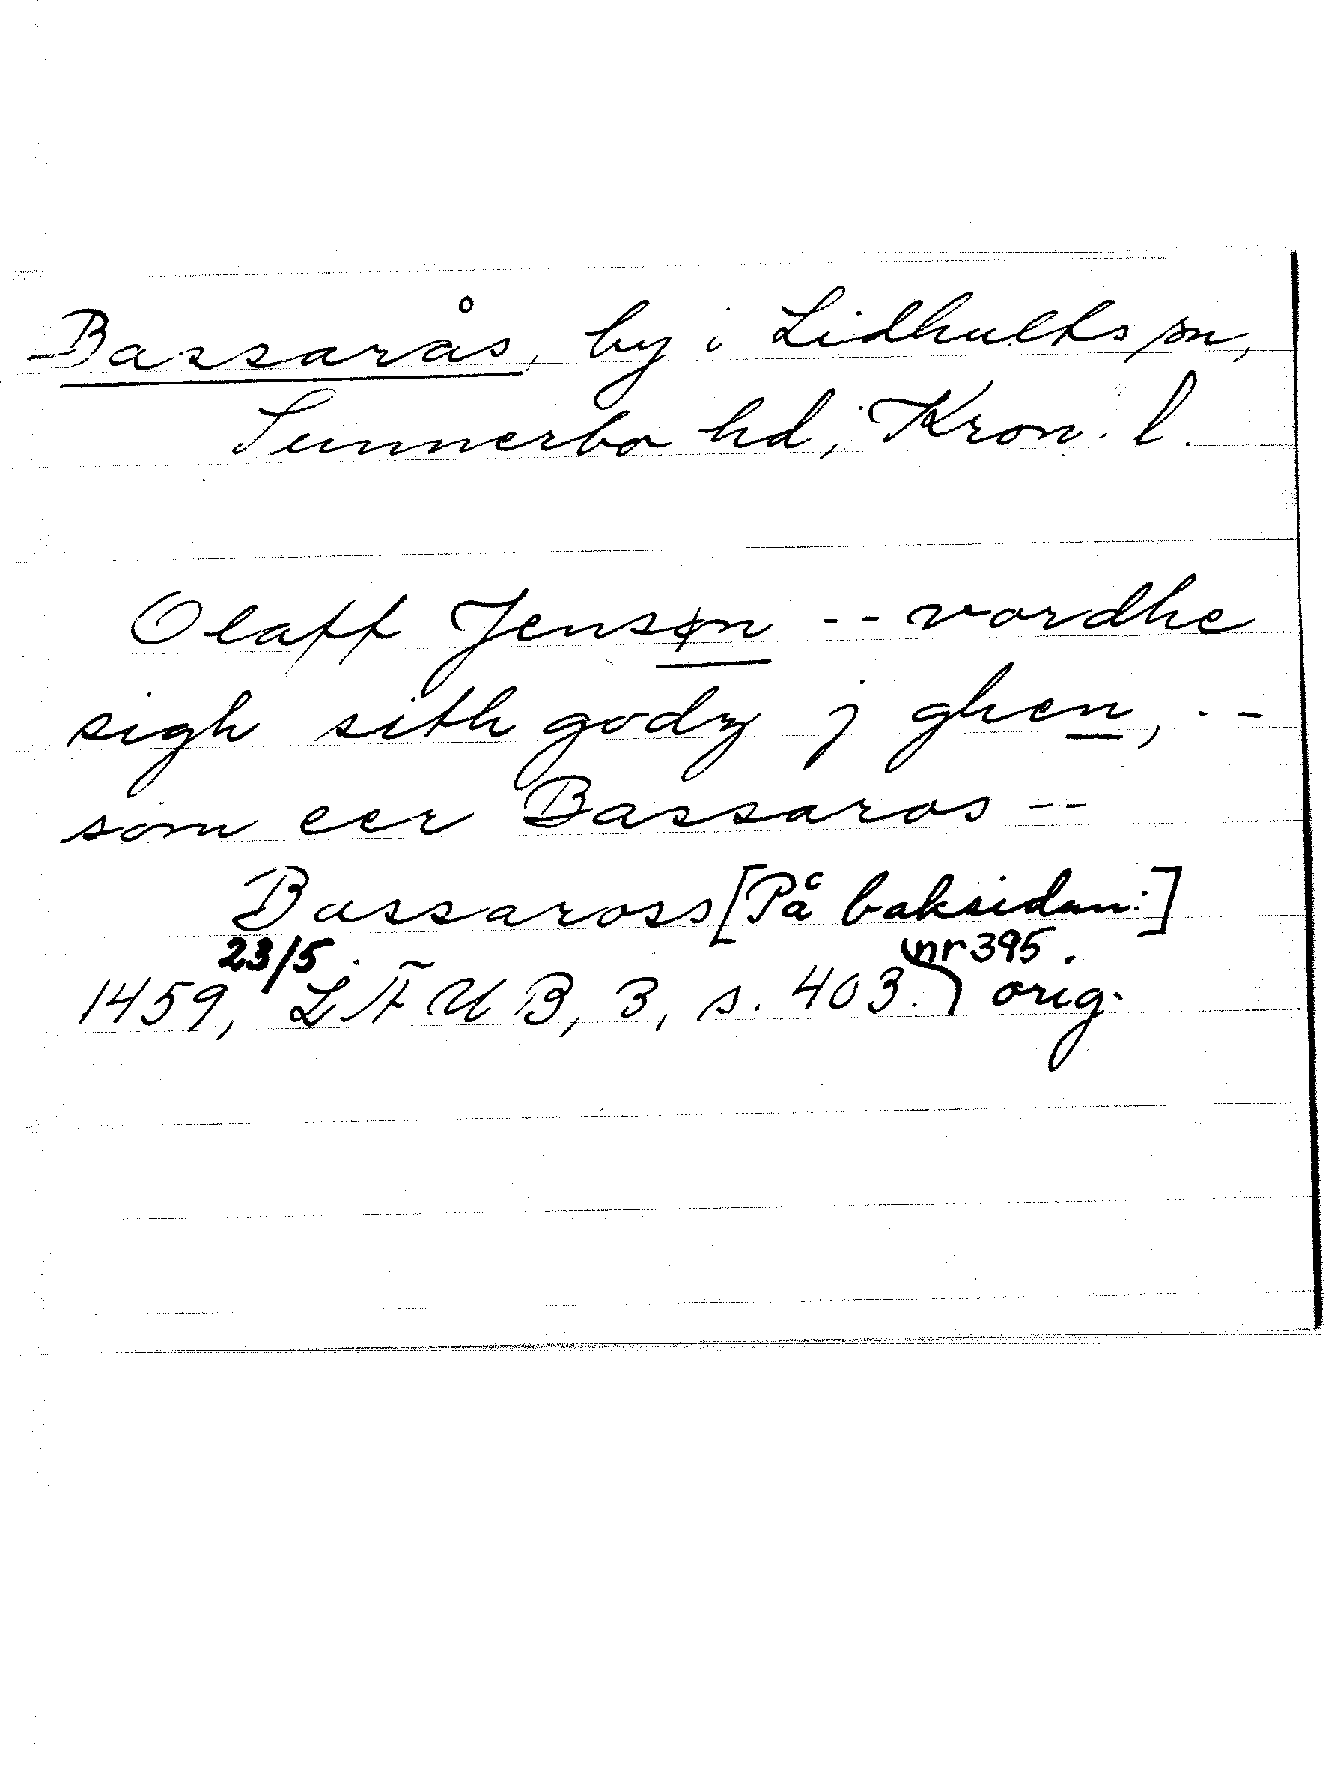 Bassarås, by i Lidhults sn,
Sunnerbo hd, Kron. l.
Olaff Jensøn -- vordhe
sigh sith godz j ghen, --
som eer Bassaros --
Bassaross [På baksidan:]
23/5 nr 395.
1459, LFUB, 3, s. 403. orig.